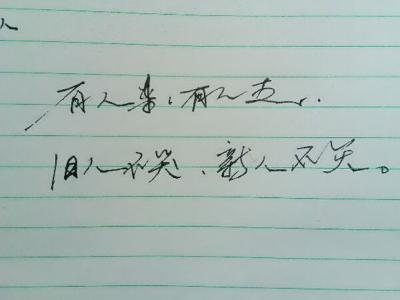 人
有人来，有人去，
旧人不哭、新人不